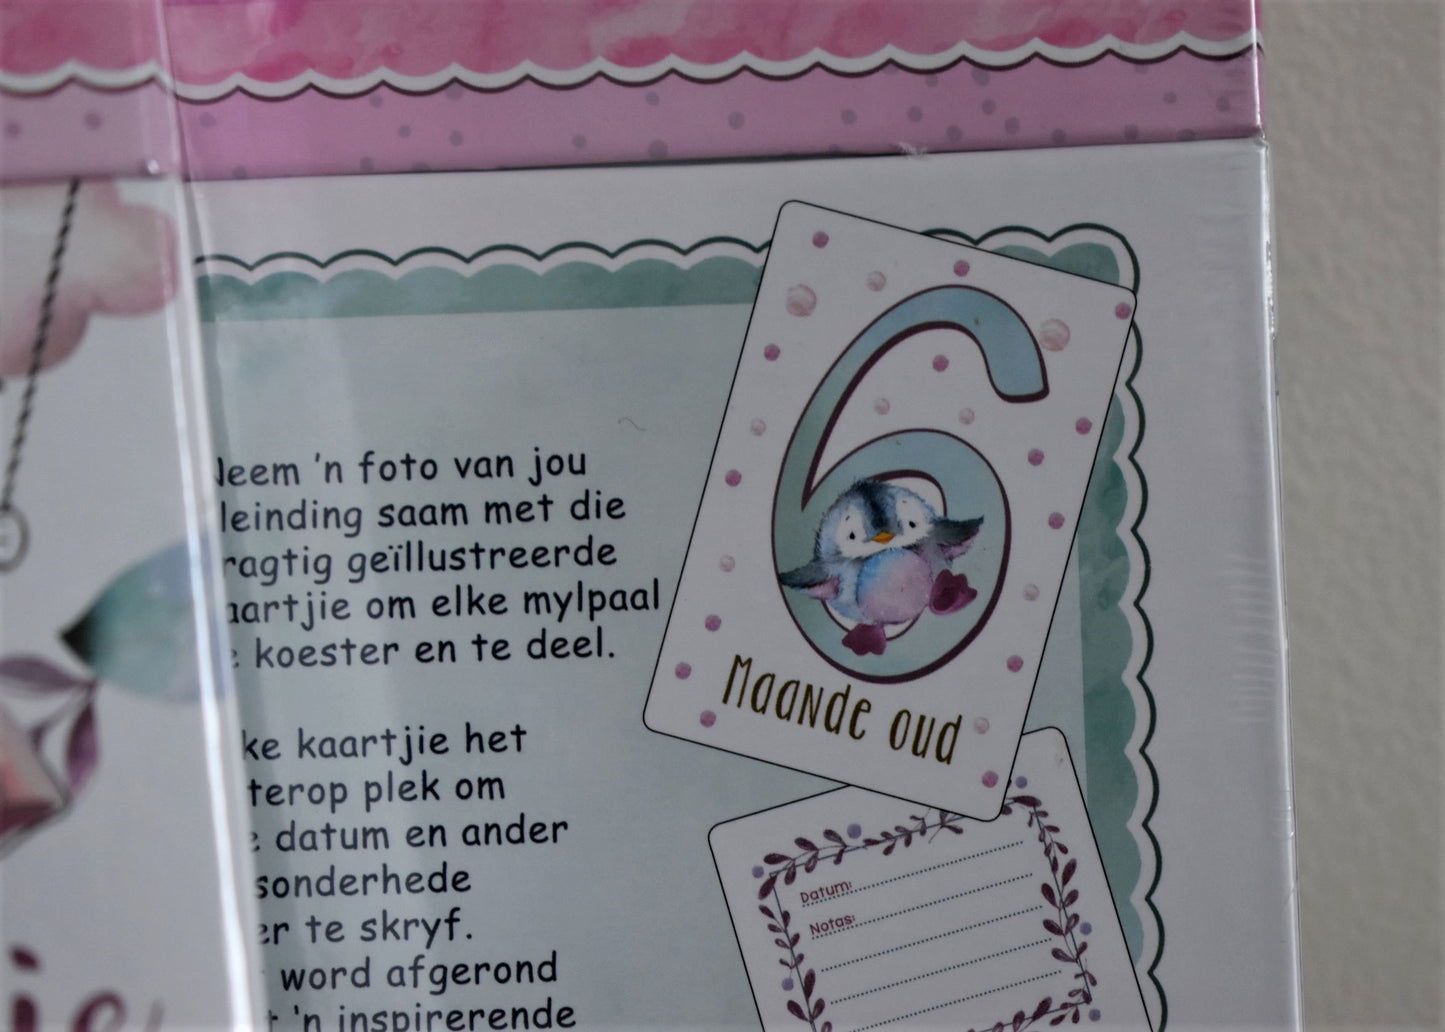 Neem 'n foto van jou
kleinding saam met die
pragtig geïllustreerde
kaartjie om elke mylpaal
te koester en te deel.
Elke kaartjie het
agterop plek om
die datum en ander
besonderhede
neer te skryf.
word afgerond
met 'n inspirerende
6
Maande oud
Datum:
Notas: